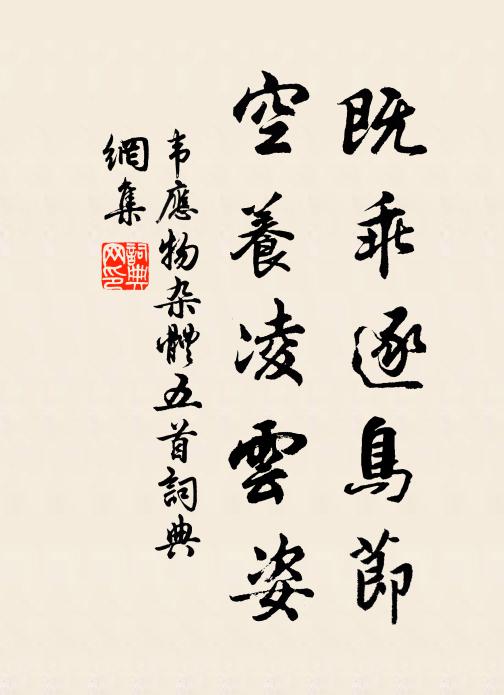 既乖逐鳥節
空養凌雲姿
韦應物杂體五首詞典
網集
詞典网印